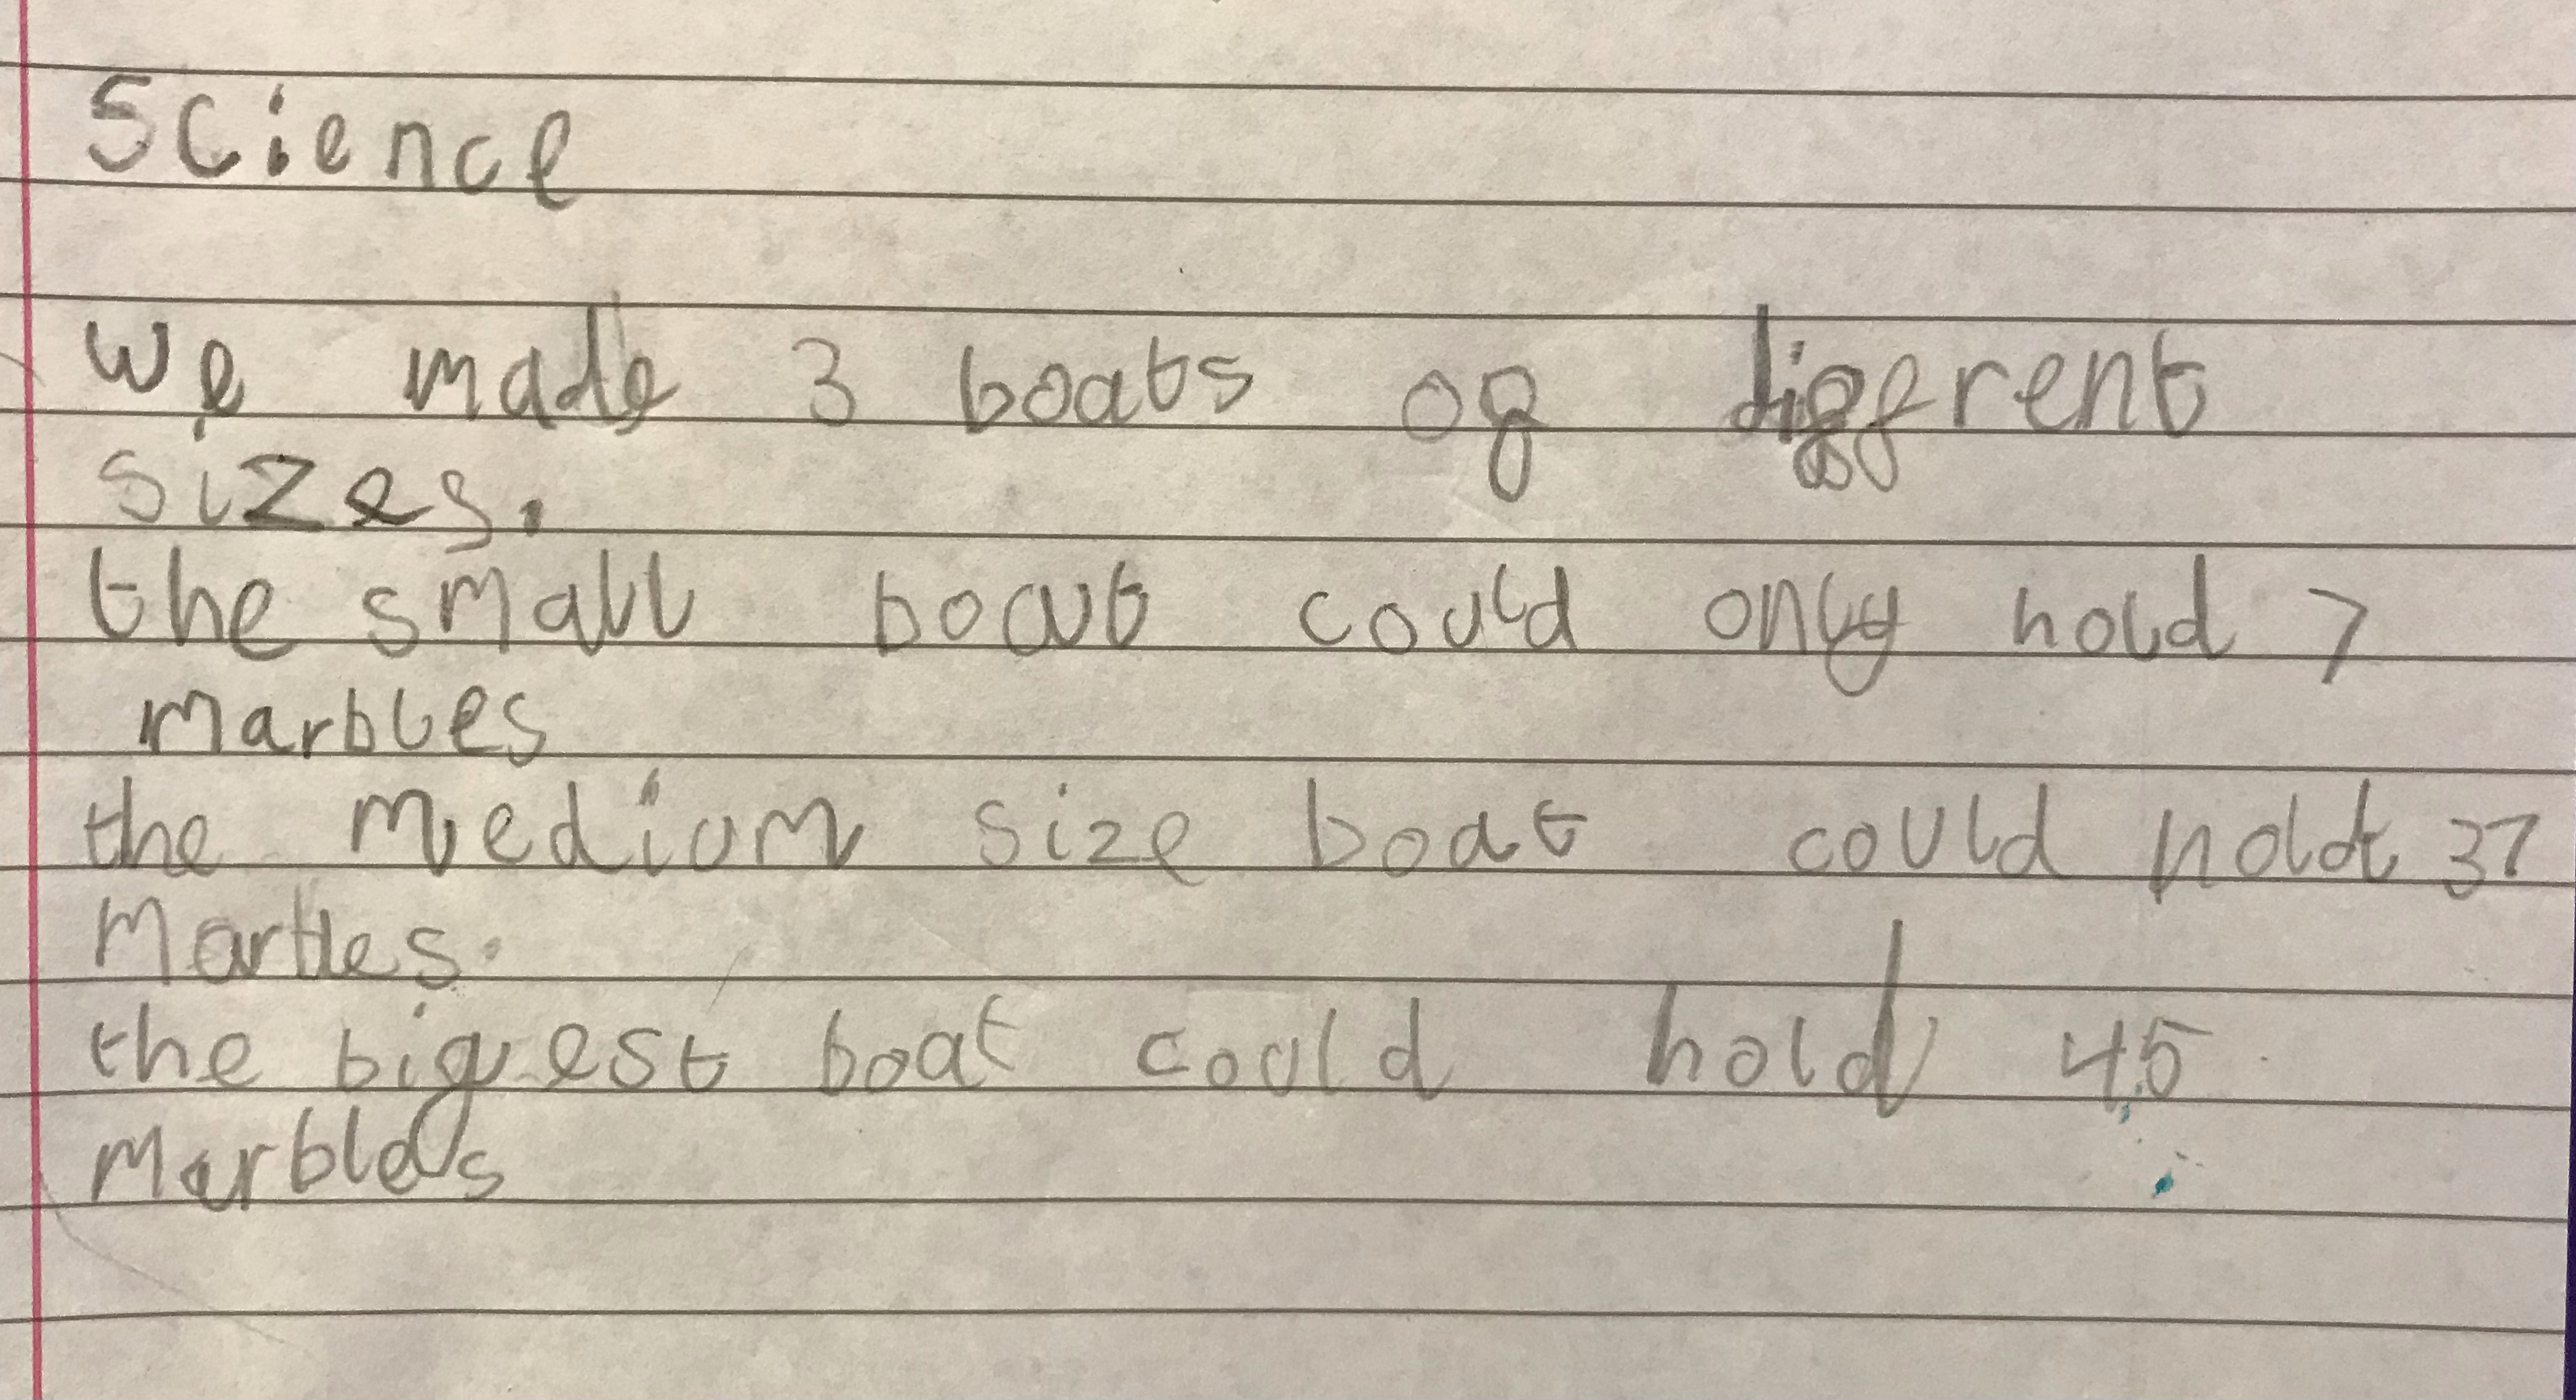 Science
We made 3 boats of diffrent
sizes.
the small boat could only hold 7
marbles
the medium size boat could hold 37
Marbles.
the bigest boat could hold 45
Marbles